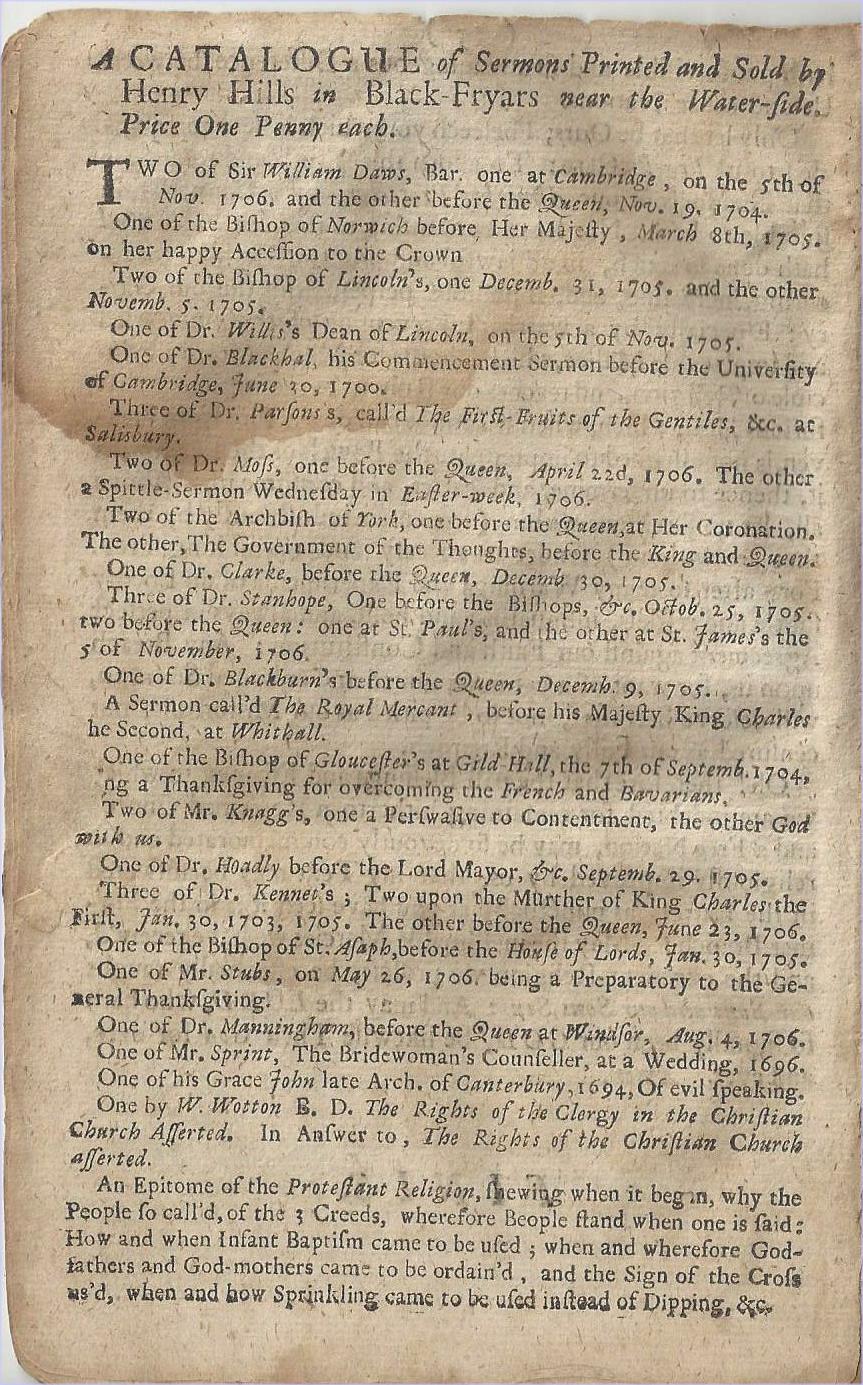 A CATALOGUE of Sermons Printed and Sold by
Henry Hills in Black-Fryars near the Water-ſide.
Price One Penny each.
TWO of Sir William Daws, Bar. one at Cambridge, on the 5th of
Nov. 1706. and the other before the Queen, Nov. 19. 1704.
One of the Biſhop of Norwich before Her Majeſty, March 8th, 1705.
on her happy Acceſſion to the Crown
Two of the Biſhop of Lincoln's, one Decemb. 31, 1705. and the other
Novemb. 5. 1705.
One of Dr. Willis's Dean of Lincoln, on the 5th of Nov. 1705.
One of Dr. Blackhal, his Commencement Sermon before the Univerſity
of Cambridge, June 30, 1700.
Three of Dr. Parſons's, call'd The Firſt-Fruits of the Gentiles, &c. at
Salisbury.
Two of Dr. Moſs, one before the Queen, April 22d, 1706. The other
a Spittle-Sermon Wedneſday in Eaſter-week, 1706.
Two of the Archbiſh of York, one before the Queen, at Her Coronation.
The other, The Government of the Thoughts, before the King and Queen.
One of Dr. Clarke, before the Queen, Decemb 30, 1705.
Three of Dr. Stanhope, One before the Biſhops, &c. Octob. 25, 1705.
two before the Queen: one at St. Paul's, and the other at St. James's the
5 of November, 1706.
One of Dr. Blackburn's before the Queen, Decemb. 9, 1705.
A Sermon call'd The Royal Mercant, before his Majeſty King Charles
he Second, at Whithall.
One of the Biſhop of Glouceſter's at Gild Hall, the 7th of Septemb. 1704,
ng a Thankſgiving for overcoming the French and Bavarians.
Two of Mr. Knagg's, one a Perſwaſive to Contentment, the other God
with us.
One of Dr. Hoadly before the Lord Mayor, &c. Septemb. 29. 1705.
Three of Dr. Kennet's; Two upon the Murther of King Charles the
Firſt, Jan. 30, 1703, 1705. The other before the Queen, June 23, 1706.
One of the Biſhop of St. Aſaph, before the Houſe of Lords, Jan. 30, 1705.
One of Mr. Stubs, on May 26, 1706. being a Preparatory to the Ge-
neral Thankſgiving.
One of Dr. Manningham, before the Queen at Windſor, Aug. 4, 1706.
One of Mr. Sprint, The Bridewoman's Counſeller, at a Wedding, 1696.
One of his Grace John late Arch. of Canterbury, 1694, Of evil ſpeaking.
One by W. Wotton B. D. The Rights of the Clergy in the Chriſtian
Church Aſſerted. In Anſwer to, The Rights of the Chriſtian Church
aſſerted.
An Epitome of the Proteſtant Religion, ſhewing when it began, why the
People ſo call'd, of the 3 Creeds, wherefore Beople ſtand when one is ſaid:
How and when Infant Baptiſm came to be uſed; when and wherefore God-
fathers and God-mothers came to be ordain'd, and the Sign of the Croſs
us'd, when and how Sprinkling came to be uſed inſtead of Dipping, &c.